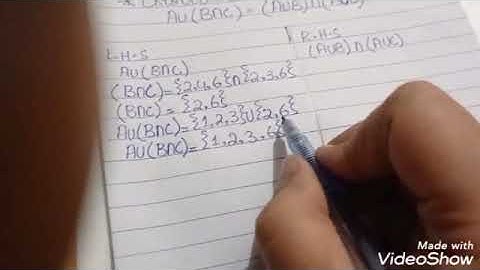 AU(BΠC) = (AUB)Π(AUC)
L-H-S
AU(BΠC)
(BΠC) = {2,4,6}Π{2,3,6}
(BΠC) = {2,6}
AU(BΠC) = {1,2,3}U{2,6}
AU(BΠC) = {1,2,3,6}
R-H-S
(AUB)Π(AUC)
Made with
VideoShow